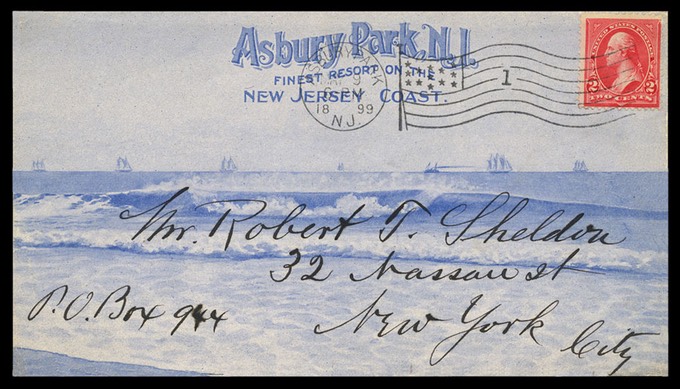 Asbury Park, N.J.
FINEST RESORT ON THE
NEW JERSEY COAST.
PARK
9
18 99
N.J.
1
UNITED STATES POSTAGE
2 TWO CENTS 2
Mr. Robert T. Sheldon
32 Nassau st
New York
City
P.O. Box 944